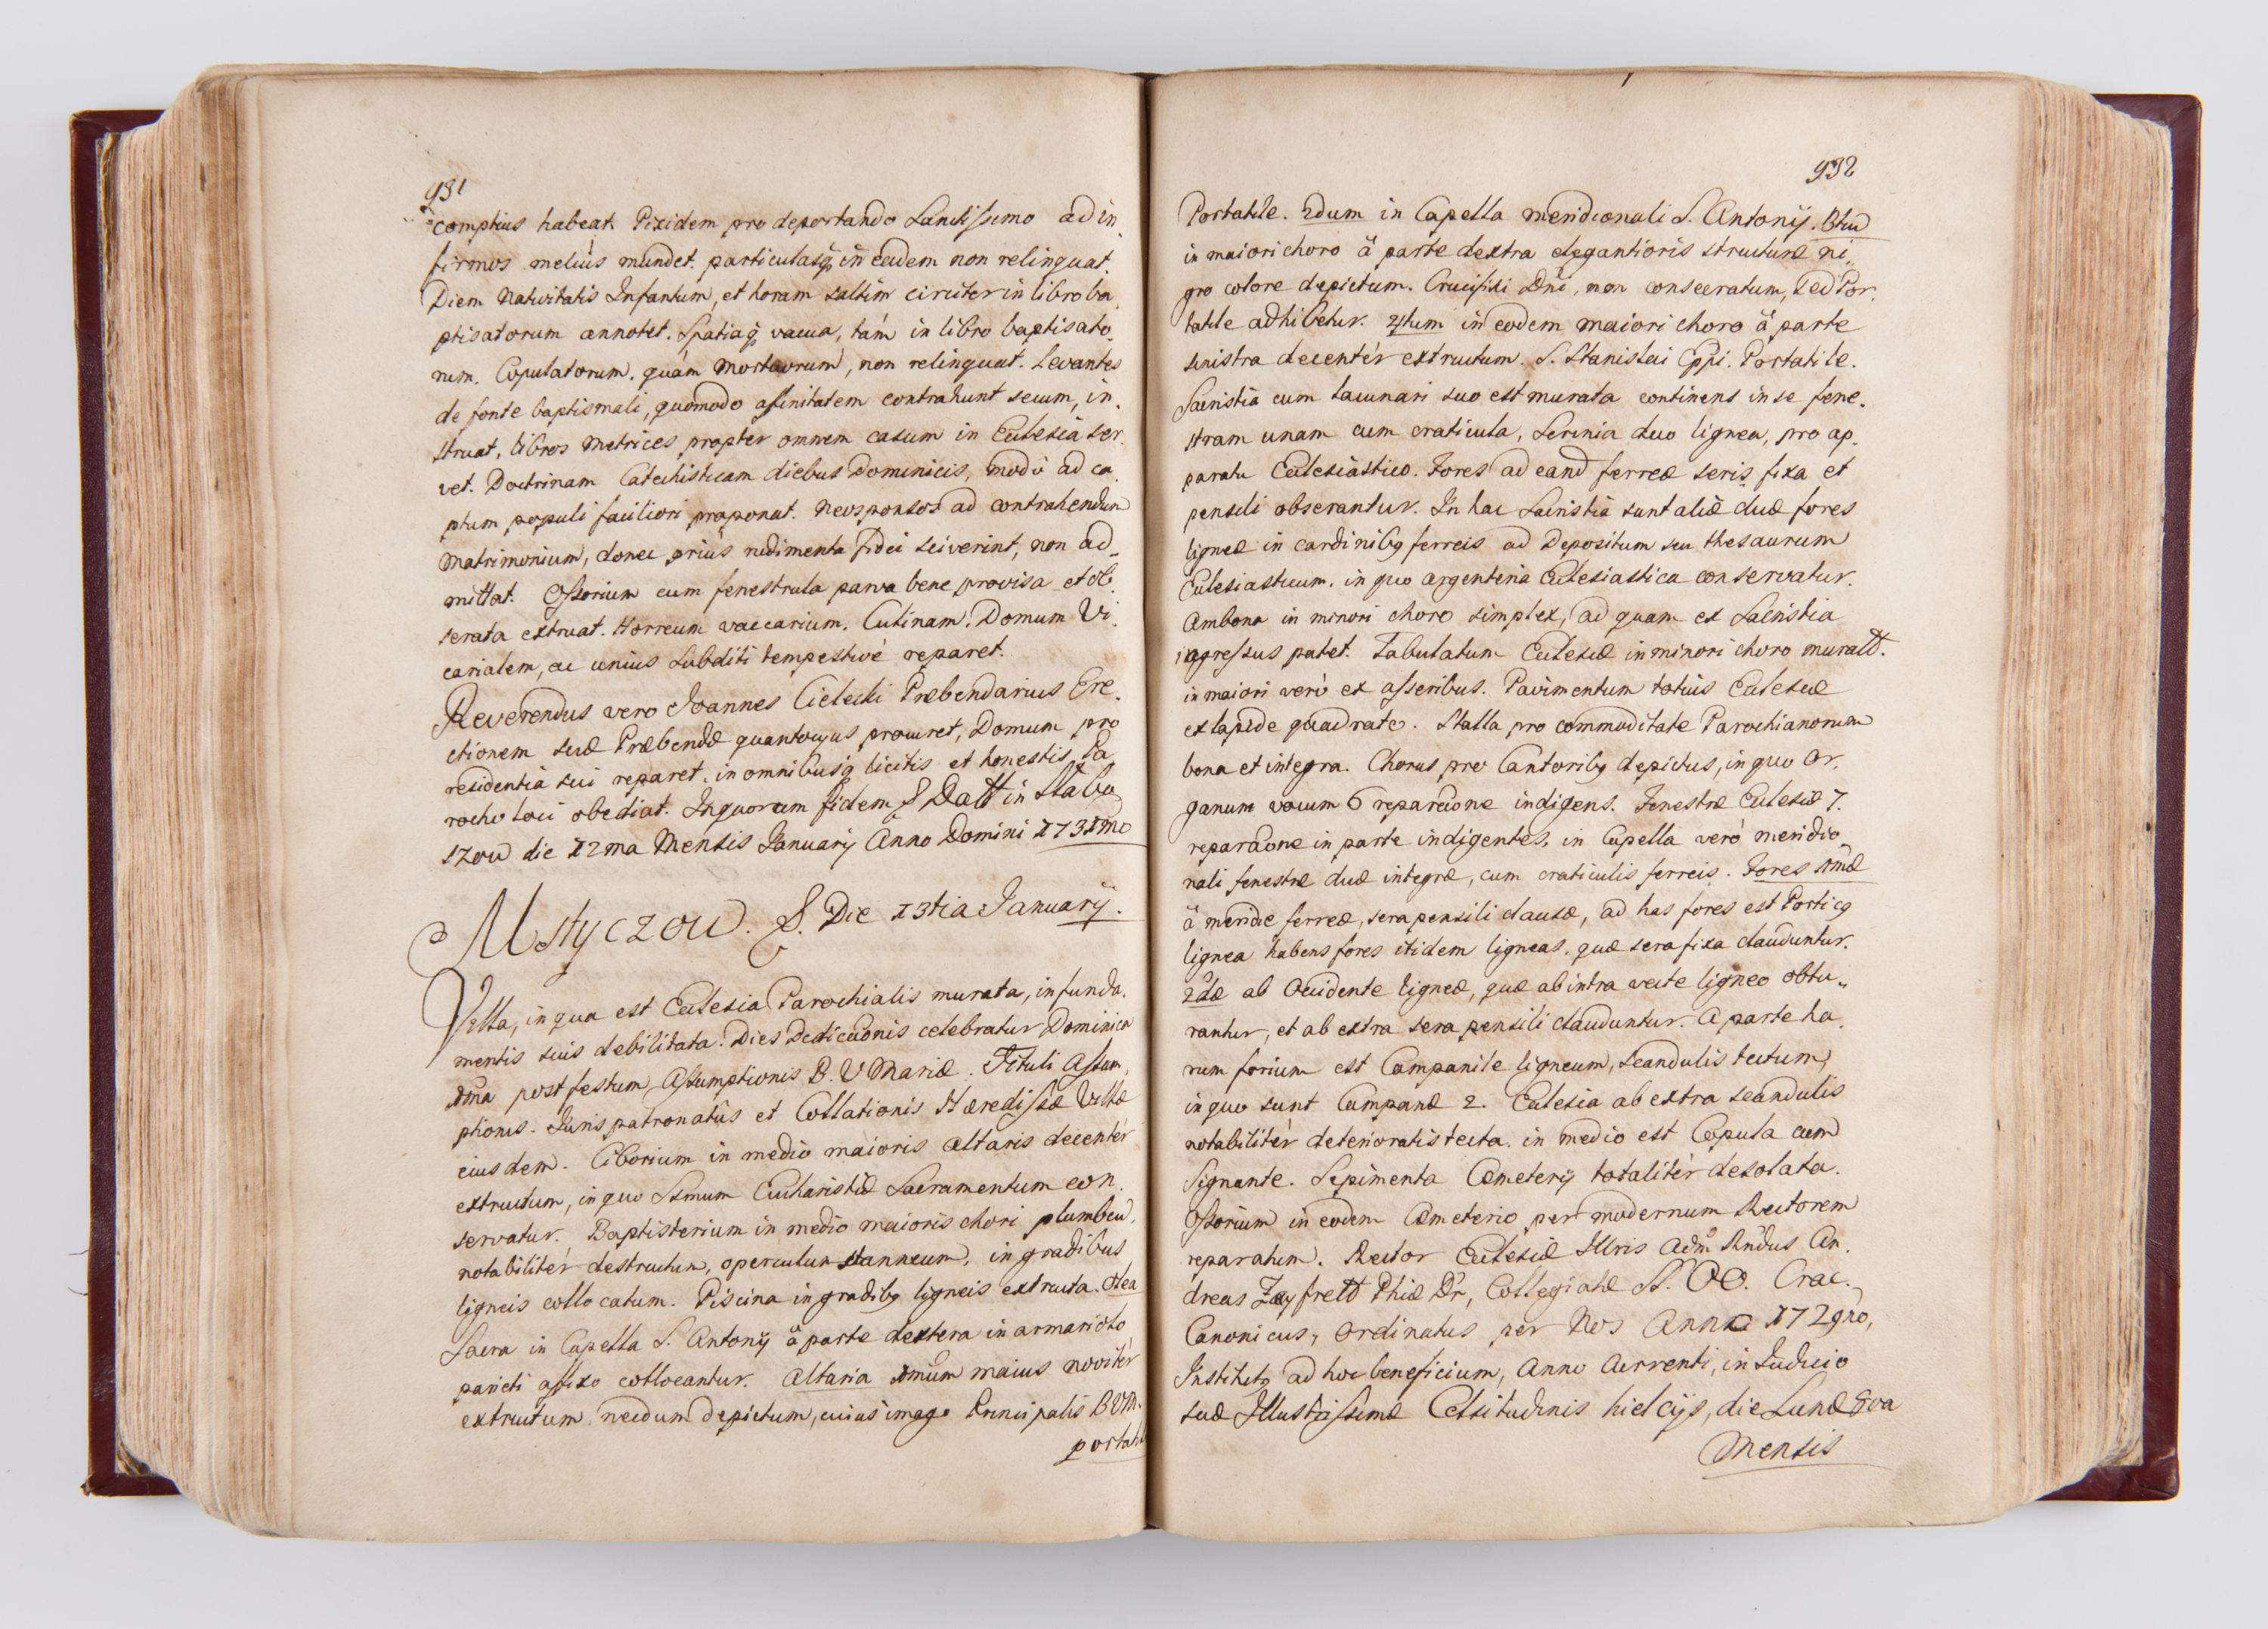 931
comptius habeat. Pixidem pro deportando Sanctissimo ad in,
firmos melius mundet. particulasq, in eadem non relinquat.
Diem Nativitatis Infantum, et horam saltim circiter in libro ba,
ptisatorum annotet. Spatiaq, vacua, tám in libro baptisato,
rum. Copulatorum. quám Mortuorum, non relinquat. Levantes
de fonte baptismali, quomodo affinitatem contrahunt secum, in,
struat, libros Metrices propter omnem casum in Ecclesia ser,
vet. Doctrinam Catechisticam diebus Dominicis, modò ad ca,
ptum populi faciliori proponat. Neosponsos ad contrahendum
Matrimonium, donec prius rudimenta fidei sciverint, non ad,
mittat. Ossorium cum fenestrula parva bene provisa et ob,
serata extruat. Horreum vaccarium. Culinam. Domum Vi,
carialem, ac unius Subditi tempestivé reparet.
Reverendus vero Joannes Cielecki Præbendarius Ere,
ctionem suæ Præbendæ quantocyus procuret, Domum pro
residentia sui reparet. in omnibusq licitis et honestis Pa,
rocho loci obediat. In quorum fidem & Datt in Stabu,
szow die 12ma Mensis January Anno Domini 1731mo
Mstyczow. &. Die 13tia Januarij.
Villa, in qua est Ecclesia Parochialis murata, in funda,
mentis suis debilitata. Dies Dedicaonis celebratur Dominica
1ma post festum Assumptionis B. V Mariæ. Tituli Assum,
ptionis. Juris patronatûs et Collationis Hæredissæ Villæ
eiusdem. Ciborium in medio maioris altaris decentér
extructum, in quo Ssmum Eucharistiæ Sacramentum con,
servatur. Baptisterium in medio maioris chori plumbeu,
notabilitér destructum, operculum stanneum, in gradibus
ligneis collocatum. Piscina in gradibq ligneis extructa. Olea
Sacra in Capella S. Antonij â parte dextera in armariolo
parieti affixo collocantur. Altaria 1mum maius novitér
extructum necdum depictum, cuius imago Principalis BVM.
portati
932
Portatile. 2dum in Capella meridionali S. Antonij. 3tiu
in maiori choro â parte dextra elegantioris structuræ ni,,
gro colore depictum. Crucifixi Dñi, non consecratum, sed Por,
tatile adhibetur. 4tum in eodem maiori choro â parte
sinistra decentér extructum. S. Stanislai Eppi. Portatile.
Sacristia cum lacunari suo est murata continens in se fene,
stram unam cum craticula, Scrinia duo lignea, pro ap,
paratu Ecclesiastico. Fores ad eand ferreæ seris fixa et
pensili obserantur. In hac Sacristia sunt aliæ duæ fores
ligneæ in cardinibq ferreis ad Depositum seu thesaurum
Ecclesiasticum. in quo argenteria Ecclesiastica conservatur.
Ambona in minori choro simplex, ad quam ex Sacristia
ingressus patet. Tabulatum Ecclesiæ in minori choro muratt.
in maiori veró ex asseribus. Pavimentum totius Ecclesiæ
ex lapide quadrato. Stalla pro commoditate Parochianorum
bona et integra. Chorus pro Cantoribq depictus, in quo Or,
ganum vocum 6 reparaone indigens. Fenestræ Ecclesiæ 7.
reparaone in parte indigentes, in Capella veró meridio,
nali fenestræ duæ integræ, cum craticulis ferreis. Fores 1mæ
â meridie ferreæ, sera pensili clausæ, ad has fores est Porticq
lignea habens fores itidem ligneas, quæ sera fixa clauduntur.
2dæ ab Occidente ligneæ, quæ ab intra vecte ligneo obtu,,
rantur, et ab extra sera pensili clauduntur. A parte ha,
rum forium est Campanile ligneum, scandulis tectum,
in quo sunt Campanæ 2. Ecclesia ab extra scandulis
notabilitér deterioratis tecta. in medio est Copula cum
Signante. Sepimenta Cæmeterij totalitér desolata.
Ossorium in eodem Cæmeterio per modernum Rectorem
reparatum. Rector Ecclesiæ Illris Adm Rndus An,
dreas Zayfrett Phiæ Dr, Collegiatæ SS. OO. Crac.
Canonicus, Ordinatus per Nos Anno 1729no,
Institutq ad hoc beneficium, Anno Currenti, in Judicio
suæ Illustrissimæ Celsitudinis Kielcijs, die Lunæ 8va
Mensis